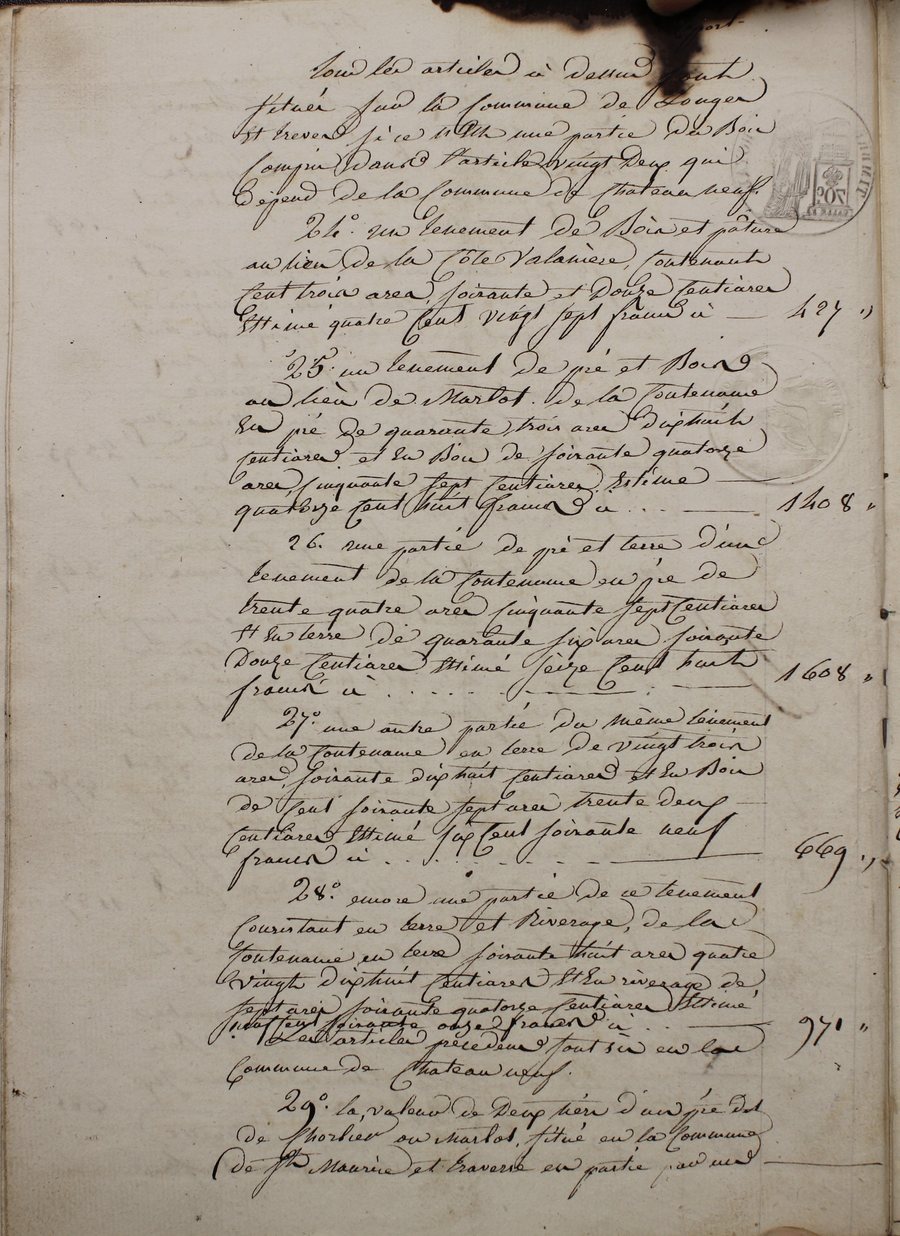 tous les articles ci dessus sont
situés sur la Commune de Longes
et treves si ce n'est une partie du Bois
Compris dans l'article vingt Deux qui
Dépend de la Commune de Chateau neuf.
24°. un tenement de Bois et pâture
au lieu de la Côte Valanière, Contenant
Cent trois ares, soixante et Douze Centiares
Estimé quatre Cent vingt sept francs ci — 427 "
25°. un tenement de pré et Bois
au lieu de Marlot. de la Contenance
En pré de quarante trois ares dixhuit
Centiares et En Bois de soixante quatorze
ares, Cinquante sept Centiares, Estimé
quatorze Cent huit francs ci . . . — 1408 "
26. une partie de pré et terre d'un
tenement de la Contenance en pré de
trente quatre ares Cinquante sept Centiares
Et En terre de quarante six ares soixante
Douze Centiares Estimé seize Cent huit
francs ci . . . . . . — 1608 "
27°. une autre partie du même tenement
de la Contenance en terre de vingt trois
ares, soixante dixhuit Centiares et En Bois
de Cent soixante sept ares trente deux
Centiares Estimé six Cent soixante neuf
francs ci . . . . . . — 669 "
28°. encore une partie de ce tenement
Consistant en terre et Riverage, de la
Contenance en terre soixante huit ares quatre
vingt dixhuit Centiares Et En riverage de
sept ares soixante quatorze Centiares Estimé
neuf Cent soixante onze francs ci . . — 971 "
Les articles précédens sont sis en la
Commune de Chateau neuf.
29°. la valeur de Deux tiers d'un pré dit
de Chorlier ou Marlot, situé en la Commune
de St Maurice et traversé en partie par un
70c